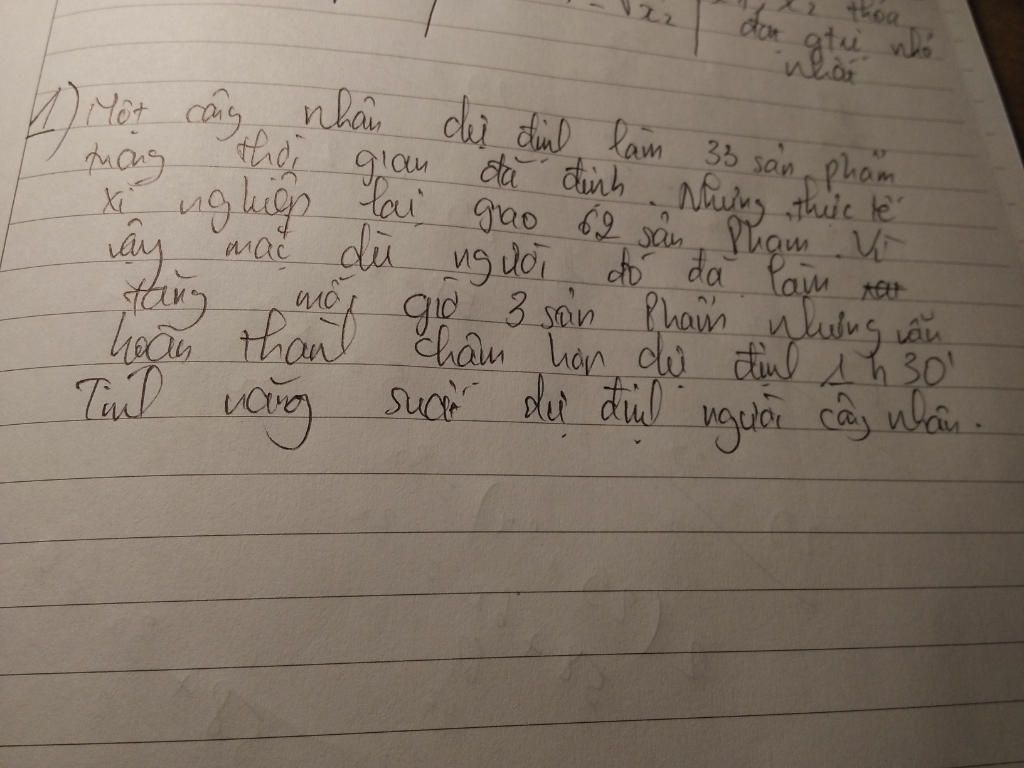 - √x₂ x₂ thỏa
đạt gtrị nhỏ
nhất
1) Một công nhân dự định làm 33 sản phẩm
trong thời gian đã định. Nhưng thực tế
xí nghiệp lại giao 62 sản phẩm. Vì
vậy mặc dù người đó đã làm
tăng mỗi giờ 3 sản phẩm nhưng vẫn
hoàn thành chậm hơn dự định 1h30'
Tính năng suất dự định người công nhân.